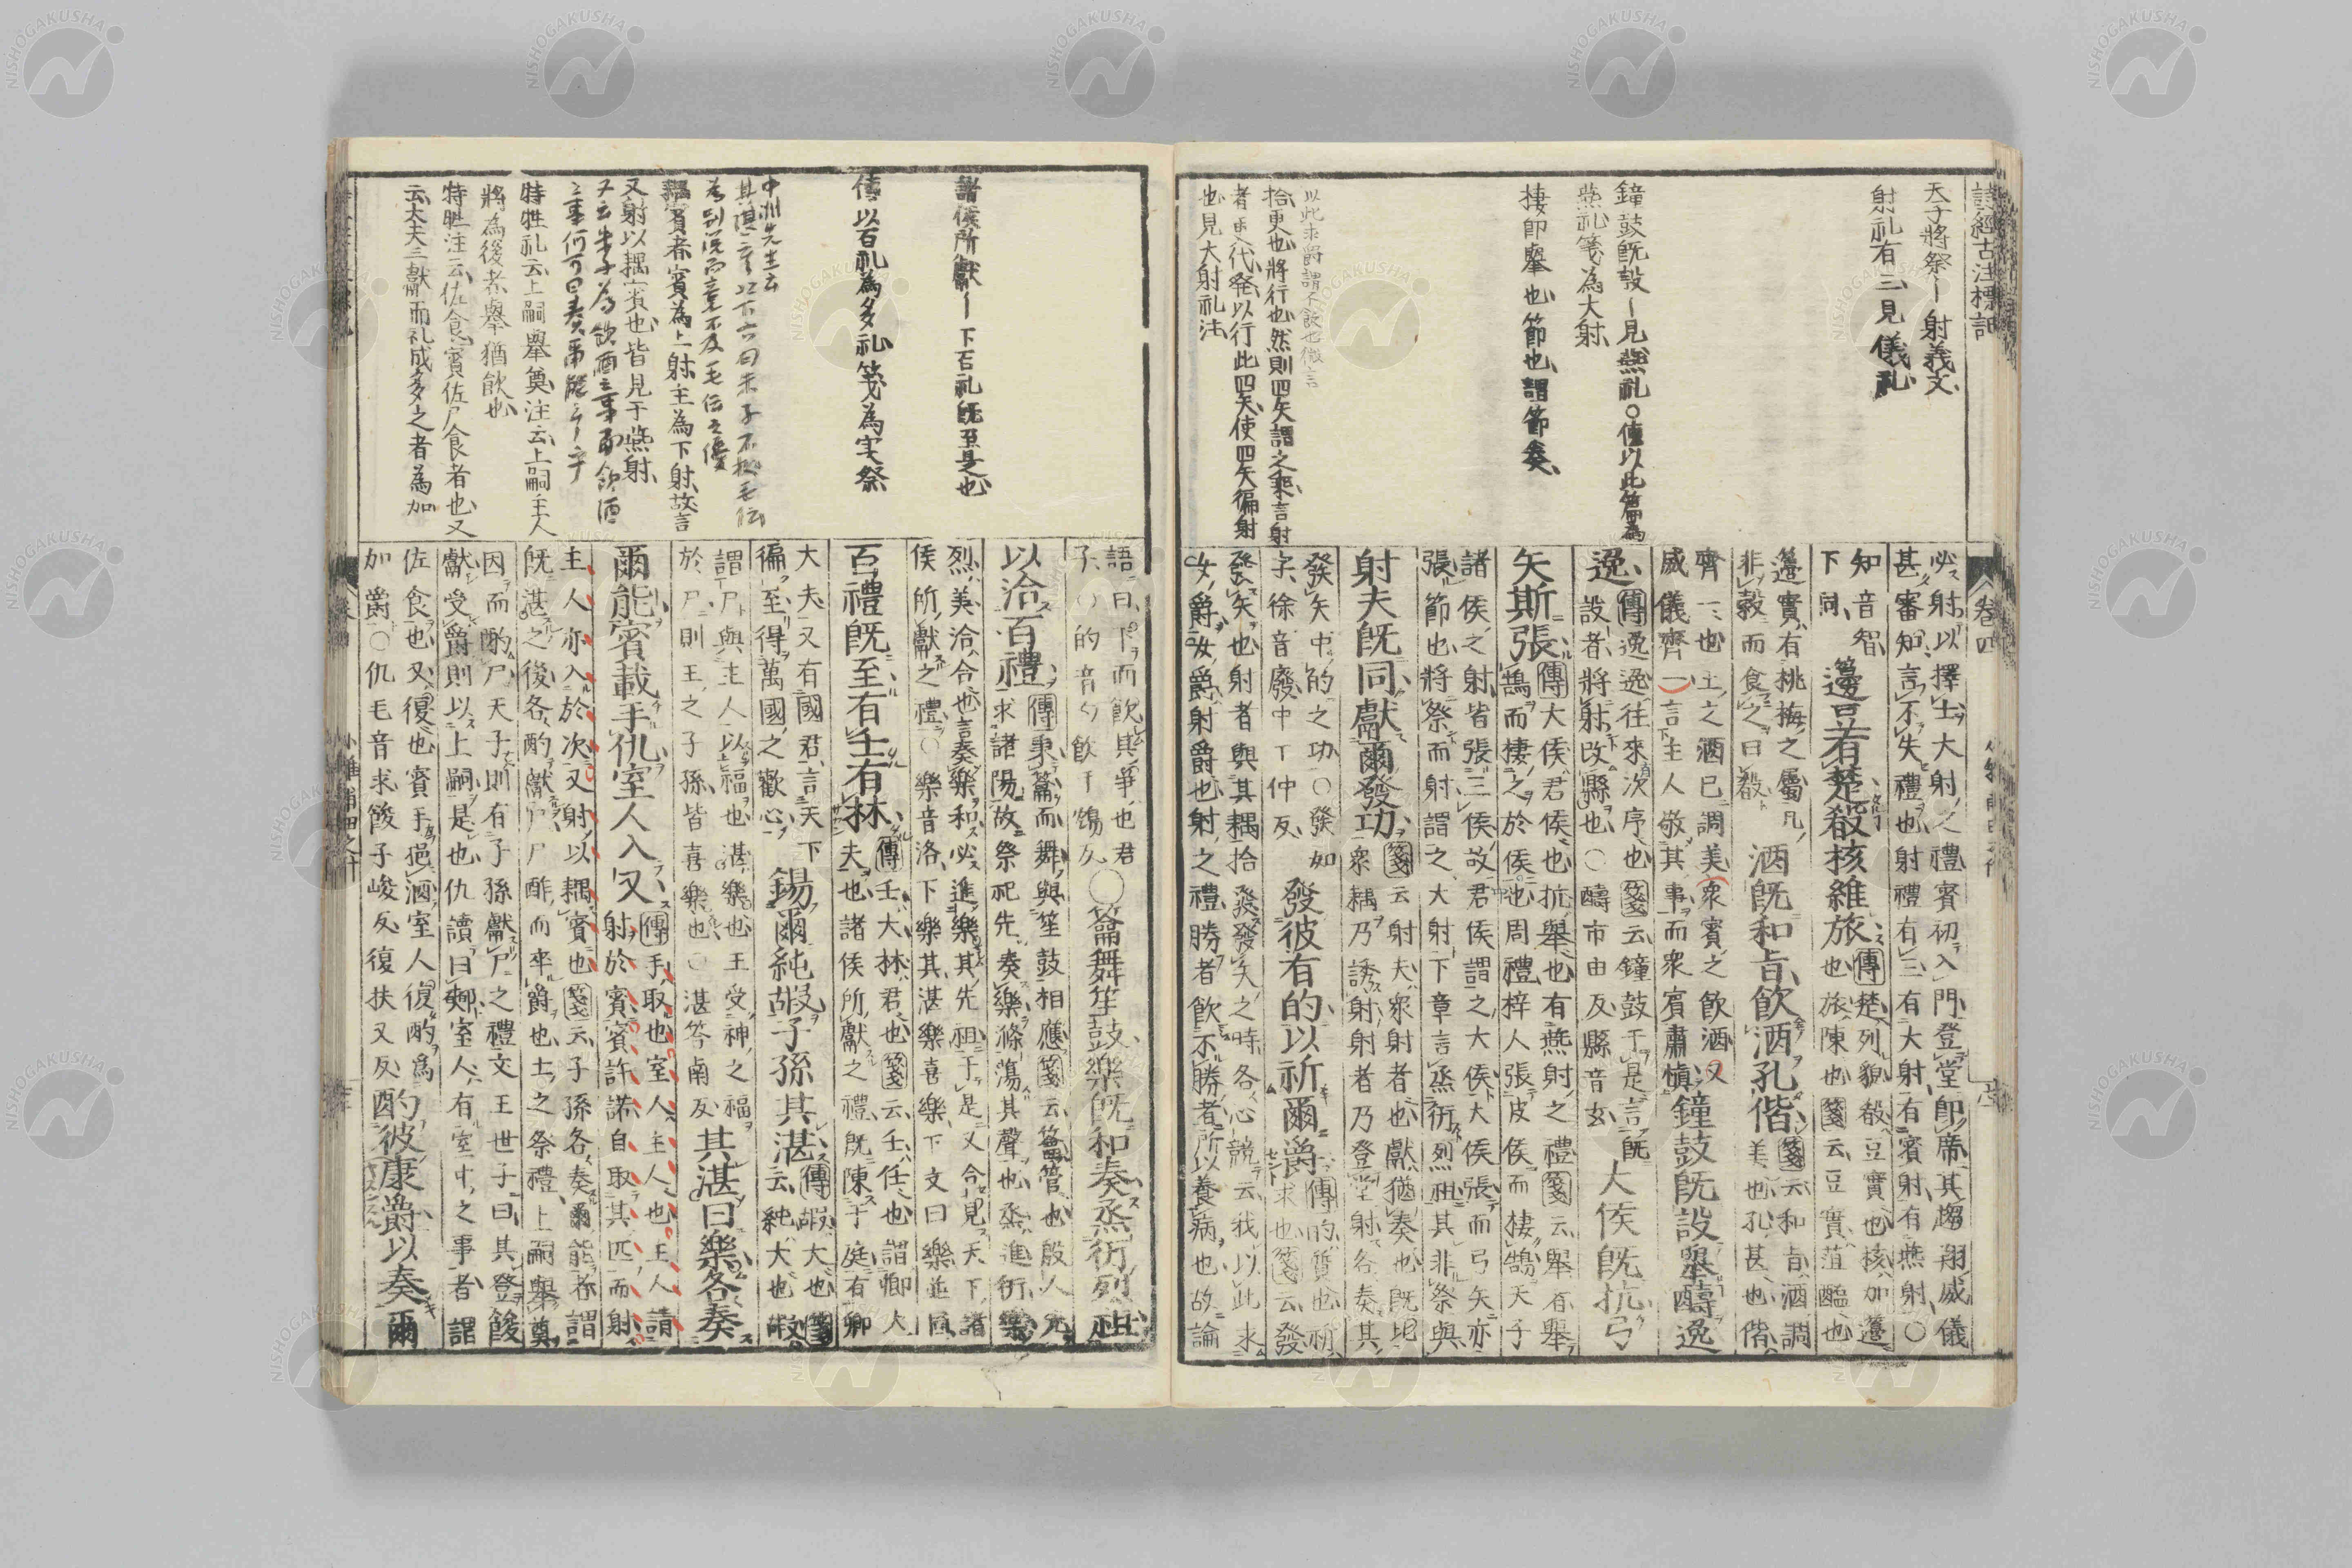 詩經古注標記
天子將祭〡射義文
射礼有三見儀礼
鐘鼓既設〡見燕礼○傳以此篇為
燕礼箋為大射
棲即舉也節也謂節奏
以此求爵謂不飲也
拾更也將行也然則四矢謂之乘言射
者更代發以行此四矢使四矢徧射
也見大射礼注
卷四
必射以擇士大射之禮賓初入門登堂即席其趨翔威儀
甚審知言不失禮也射禮有三有大射有賓射有燕射○
知音智
下同
籩豆有楚殽核維旅
傳楚列貌殽豆實也核加籩
也旅陳也箋云豆實菹醢也
籩實有桃梅之屬凡
非穀而食之曰殽
酒既和旨飲酒孔偕
箋云和旨酒調
美也孔甚也偕
齊一也王之酒已調美衆賓之飲酒又
威儀齊一言主人敬其事而衆賓肅慎
鐘鼓既設舉醻逸
逸
傳逸逸往來次序也箋云鐘鼓于是言既
設者將射改縣也○醻市由反縣音玄
大侯既抗弓
矢斯張
傳大侯君侯也抗舉也有燕射之禮箋云舉者舉
鵠而棲之於侯也周禮梓人張皮侯而棲鵠天子
諸侯之射皆張三侯故君侯謂之大侯大侯張而弓矢亦
張節也將祭而射謂之大射下章言烝衎烈祖其非祭與
射夫既同獻爾發功
箋云射夫衆射者也獻猶奏也既比
衆耦乃誘射射者乃登堂射各奏其
發矢中的之功○發如
字徐音廢中丁仲反
發彼有的以祈爾爵
傳的質也祈
求也箋云發
發矢也射者與其耦拾發發矢之時各心競云我以此求
女爵女爵射爵也射之禮勝者飲不勝者所以養病也故論
諸侯所獻〡下百礼既至是也
傳以百礼為多礼箋為実祭
中洲先生云
耦賓者賓為上射主為下射故言
又射以耦賓也皆見于燕射
特牲礼云上嗣舉奠注云上嗣主人
將為後者舉猶飲也
特牲注云佐食賓佐尸食者也又
云大夫三獻而礼成多之者為加
語曰下而飲其爭也君
子○的音勺飲于鴆反
○籥舞笙鼓樂既和奏烝衎烈祖
以洽百禮
傳秉籥而舞與笙鼓相應箋云籥管也殷人先
求諸陽故祭祀先奏樂滌蕩其聲也烝進衎樂
烈美洽合也言奏樂和必進樂其先祖于是又合見天下諸
侯所獻之禮○樂音洛下樂其湛樂喜樂下文曰樂並同
百禮既至有壬有林
傳壬大林君也箋云壬任也謂卿大
夫也諸侯所獻之禮既陳于庭有卿
大夫又有國君言天下
徧至得萬國之歡心
錫爾純嘏子孫其湛
傳嘏大也箋
云純大也嘏
謂尸與主人以福也湛樂也王受神之福
於尸則王之子孫皆喜樂也○湛答南反
其湛曰樂各奏
爾能賓載手仇室人入又
傳手取也室人主人也主人請
射於賓賓許諾自取其匹而射
主人亦入於次又射以耦賓也箋云子孫各奏爾能者謂
既湛之後各酌獻尸尸酢而卒爵也士之祭禮上嗣舉奠
因而酌尸天子則有子孫獻尸之禮文王世子曰其登餕
獻受爵則以上嗣是也仇讀曰㪺室人有室中之事者謂
佐食也又復也賓手挹酒室人復酌爲
加爵○仇毛音求餕子峻反復扶又反
酌彼康爵以奏爾